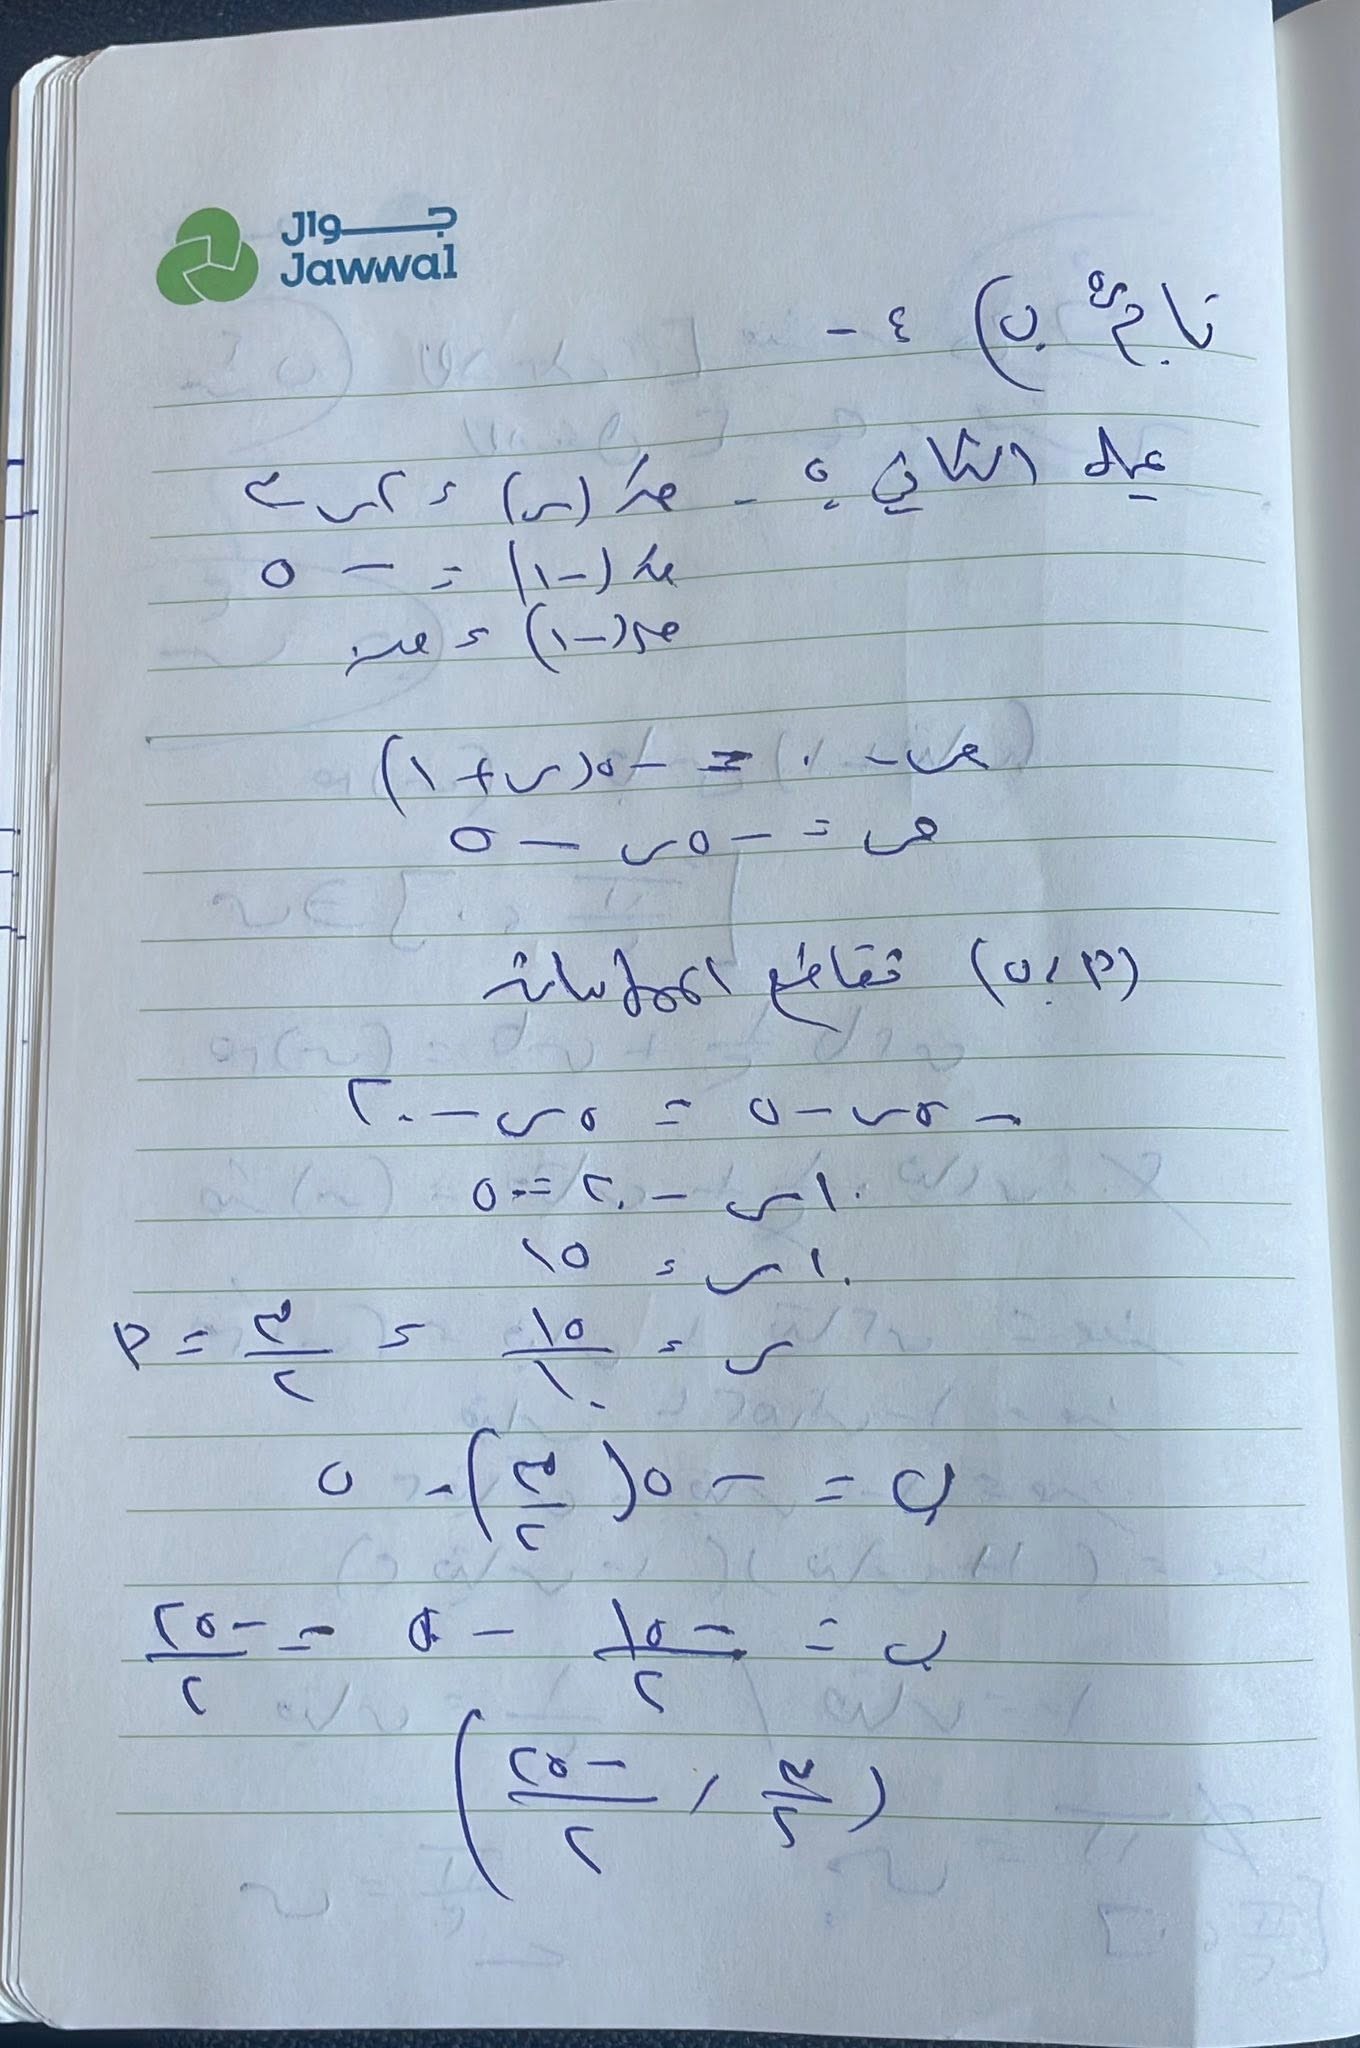 جــوال
Jawwal
تابع س٥ ب) ٤ -
ميل الثاني : - هـَ(س) = ٢س - ٣
هـَ(-١) = - ٥
هـ(-١) = صفر
ص - ٠ = -٥(س + ١)
ص = -٥س - ٥
(م ، ن) تقاطع المماسات
-٥س - ٥ = ٥س - ٢٠
١٠س - ٢٠ = -٥
١٠س = ١٥
س = ١٥/١٠ = ٣/٢ = م
ن = -٥(٣/٢) - ٥
ن = -١٥/٢ - ٥ = -٢٥/٢
(٣/٢ ، -٢٥/٢)